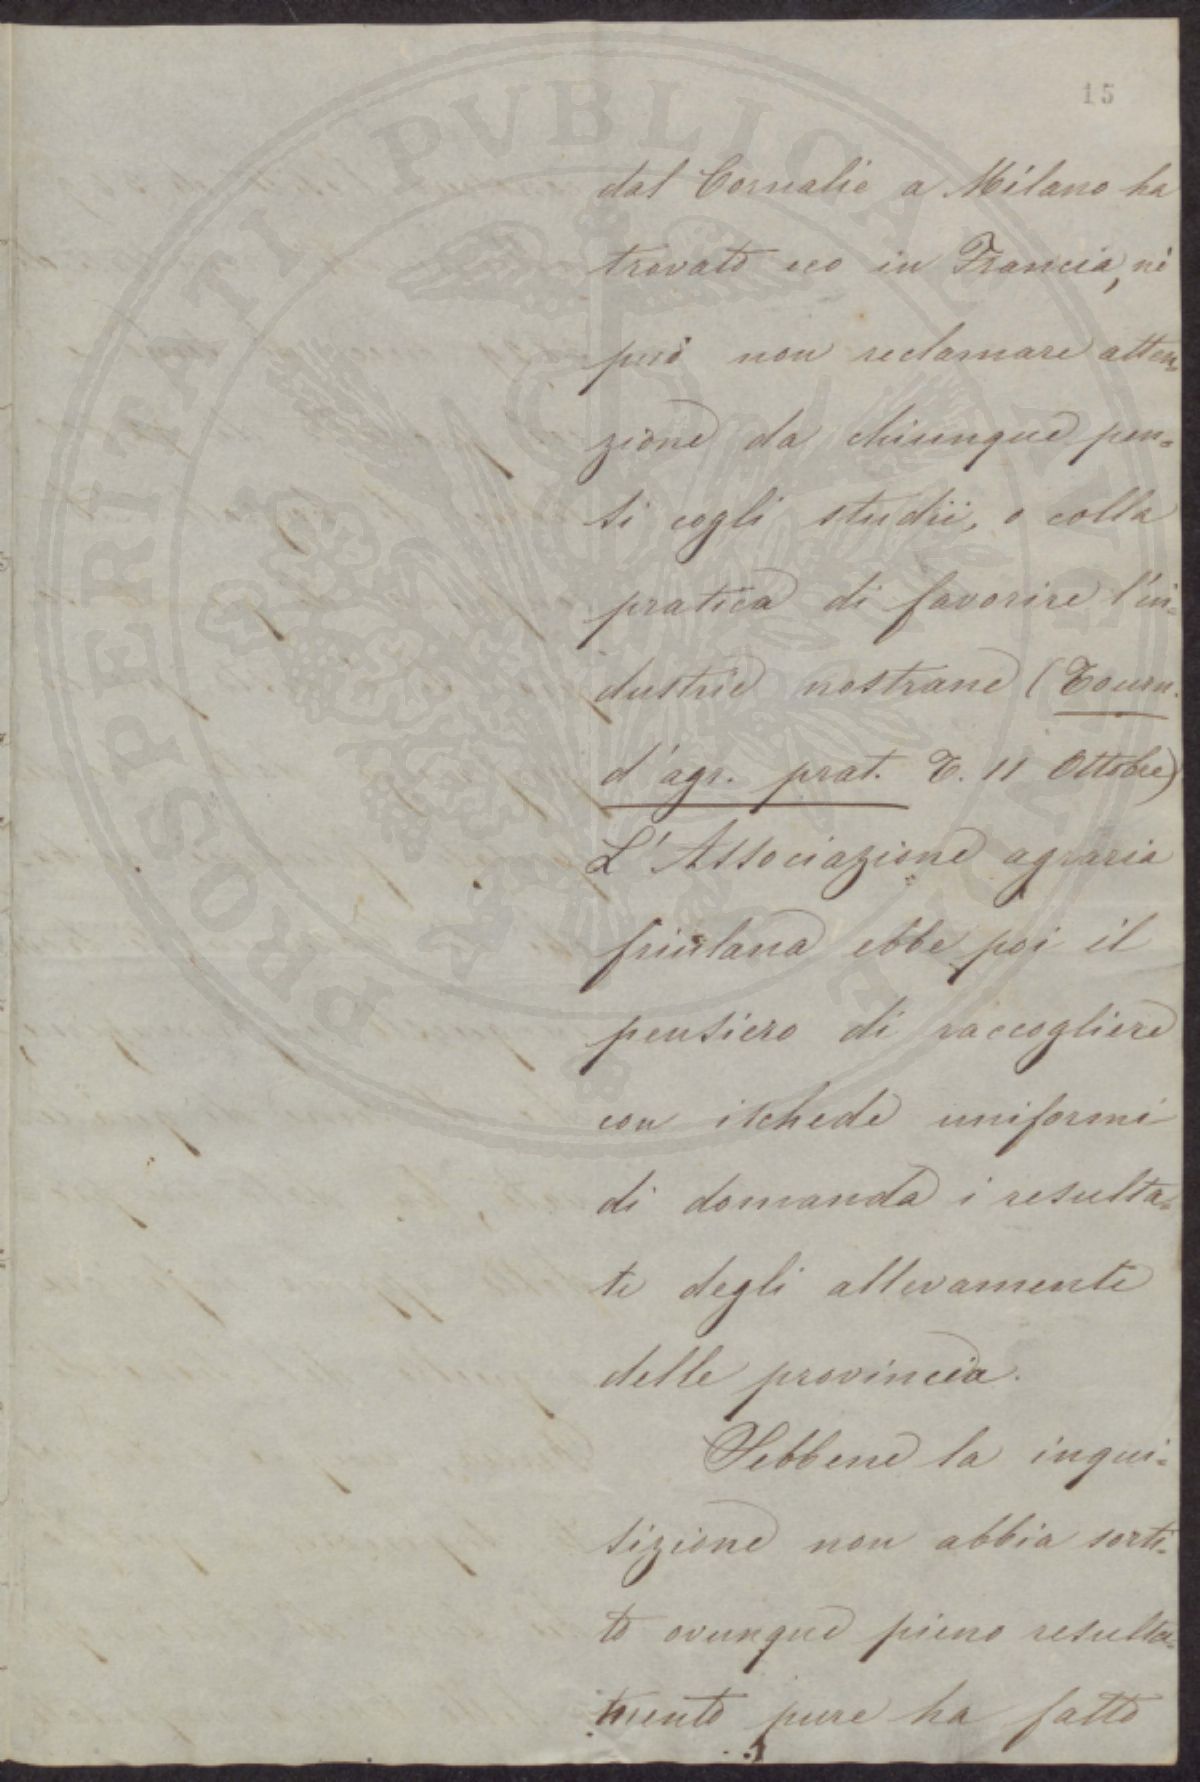 15
dal Cornalie a Milano ha
trovato eco in Francia, nè
può non reclamare atten=
zione da chiunque pen=
si cogli studii, o colla
pratica di favorire l'in=
dustrie nostrane (Tourn.
d'agr. prat. T. 11 Ottobre)
L'Associazione agraria
friulana ebbe poi il
pensiero di raccogliere
con ischede uniformi
di domanda i resulta=
ti degli allevamenti
delle provincia.
Sebbene la inqui=
sizione non abbia sorti=
to ovunque pieno resulta=
mento pure ha fatto
PROSPERITATI PVBLICAE AVGENDAE